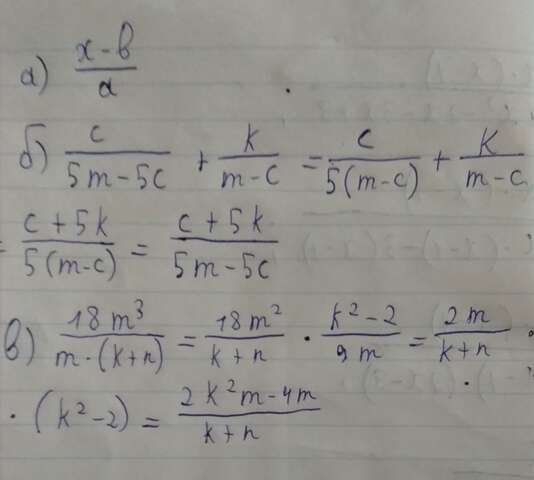 а) (x-b)/a
б) c/(5m-5c) + k/(m-c) = c/(5(m-c)) + k/(m-c)
= (c+5k)/(5(m-c)) = (c+5k)/(5m-5c)
в) 18m³/(m·(k+n)) = 18m²/(k+n) · (k²-2)/(9m) = 2m/(k+n) ·
· (k²-2) = (2k²m-4m)/(k+n)